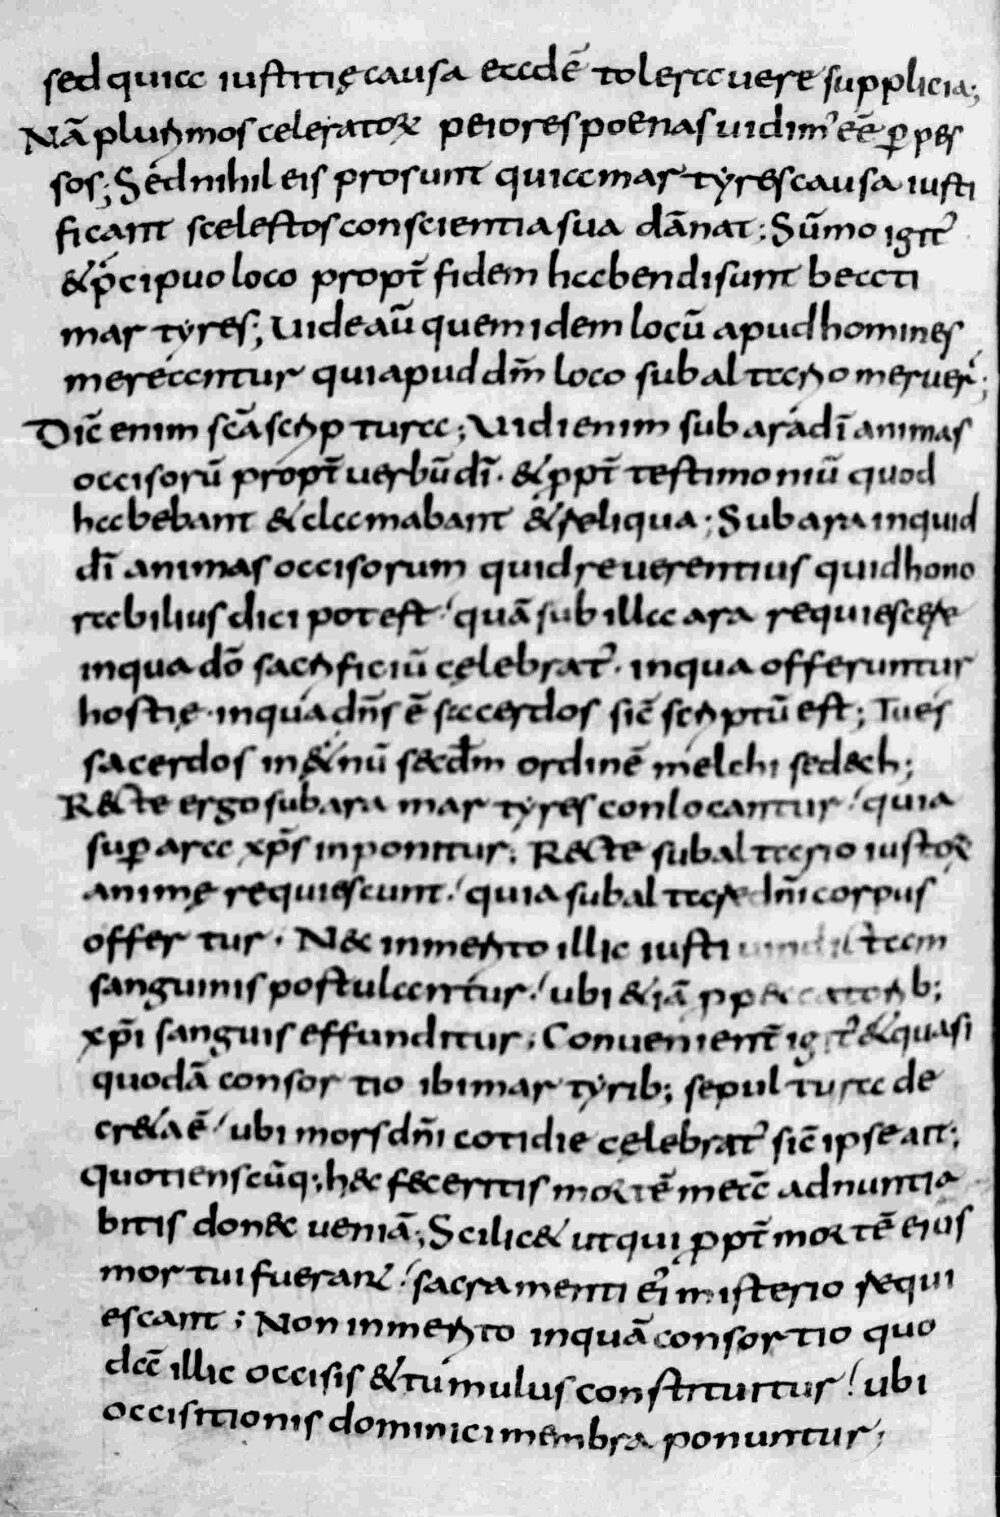 sed quia iustitię causa eadē tolerauere supplicia;
Nā plurimos celeratorꝝ peiores poenas uidim᾽ eē ꝑpes
sos; Sed nihil eis prosunt quia martyres causa iusti
ficant scelestos conscientia sua dānat; Sūmo igit᾽
& p̄cipuo loco propt̄ fidem habendi sunt beati
martyres; Uide aū quem idem locū apud homines
mereantur qui apud dm̄ loco sub altario meruer̄;
Dic̄ enim sc̄a scriptura; Uidi enim sub ara dī animas
occisorū propt̄ uerbū dī· & ꝓpt̄ testimoniū quod
habebant & clamabant & reliqua; Sub ara inquid
dī animas occisorum quid reuerentius quid hono
rabilius dici potest quā sub illa ara requiescere
in qua dō sacrificiū cęlebrat᾽· in qua offeruntur
hostię· in qua dn̄s ē sacerdos sic̄ scriptū est; Tu es
sacerdos in &̨nū secdm̄ ordinē melchisedech;
Recte ergo sub ara martyres conlocantur quia
suꝑ ara xp̄s inponitur; Recte sub altario iustoꝝ
animę requiescunt quia sub altare dn̄i corpus
offertur· Nec inmerito illic iusti uindictam
sanguinis postulantur ubi &iā ꝓ peccatorib;
xp̄i sanguis effunditur; Conuenient̄ igit᾽ & quasi
quodā consortio ibi martyrib; sepultura de
cr&a ē ubi mors dn̄i cotidie cęlebrat᾽ sic̄ ipse ait;
quotienscūq; hec feceritis mortē meā adnuntia
bitis donec ueniā; Scilic& ut qui ꝓpt̄ mortē eius
mortui fuerant sacramenti ei᾽ misterio requi
escant; Non inmerito inquā consortio quo
dā illic occisis & tumulus constituitur ubi
occisitionis dominici membra ponuntur;